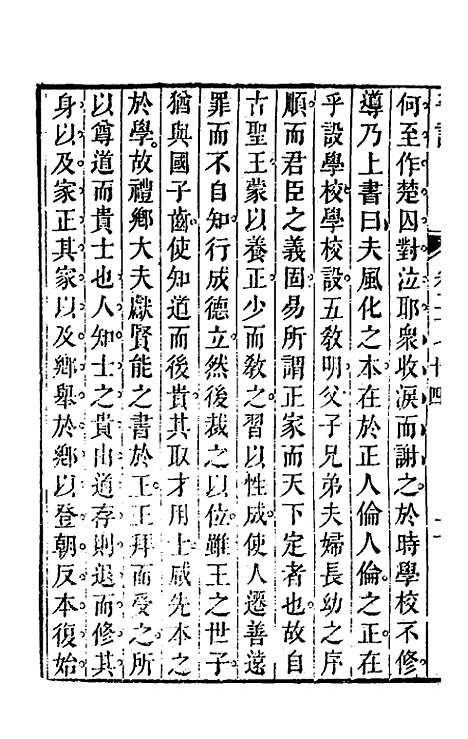 何至作楚囚對泣耶衆收淚而謝之於時學校不修
導乃上書曰夫風化之本在於正人倫人倫之正在
乎設學校學校設五敎明父子兄弟夫婦長幼之序
順而君臣之義固易所謂正家而天下定者也故自
古聖王蒙以養正少而敎之習以性成使人遷善遠
罪而不自知行成德立然後裁之以位雖王之世子
猶與國子齒使知道而後貴其取才用士咸先本之
於學故禮鄉大夫獻賢能之書於王王拜而受之所
以尊道而貴士也人知士之貴由道存則退而修其
身以及家正其家以及鄉舉於鄉以登朝反本復始